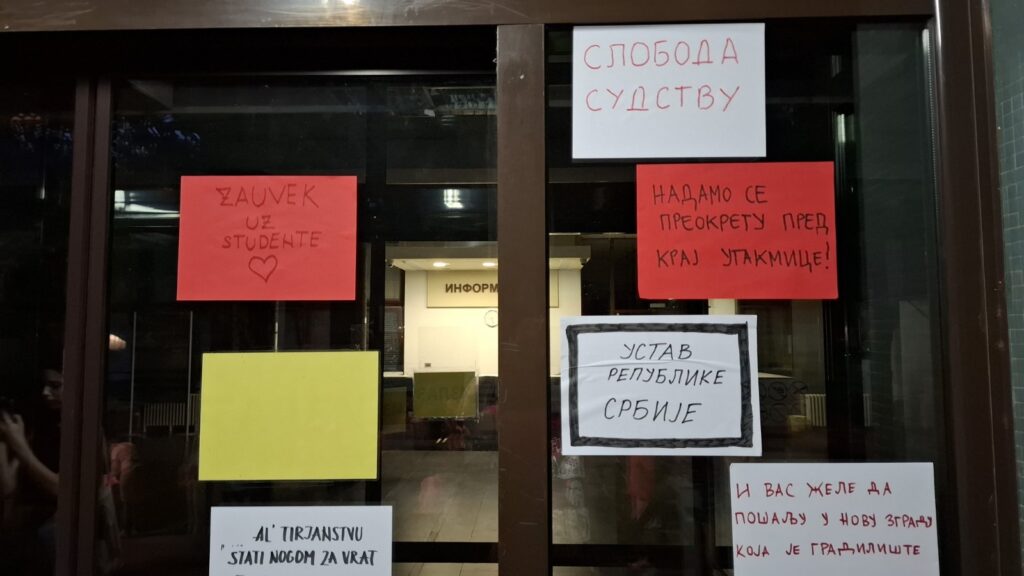 СЛОБОДА
СУДСТВУ
ZAUVEK
UZ
STUDENTE
НАДАМО СЕ
ПРЕОКРЕТУ ПРЕД
КРАЈ УТАКМИЦЕ!
ИНФОРМ
УСТАВ
РЕПУБЛИКЕ
СРБИЈЕ
И ВАС ЖЕЛЕ ДА
ПОШАЉУ У НОВУ ЗГРАДУ
КОЈА ЈЕ ГРАДИЛИШТЕ
AL' TIRJANSTVU
STATI NOGOM ZA VRAT